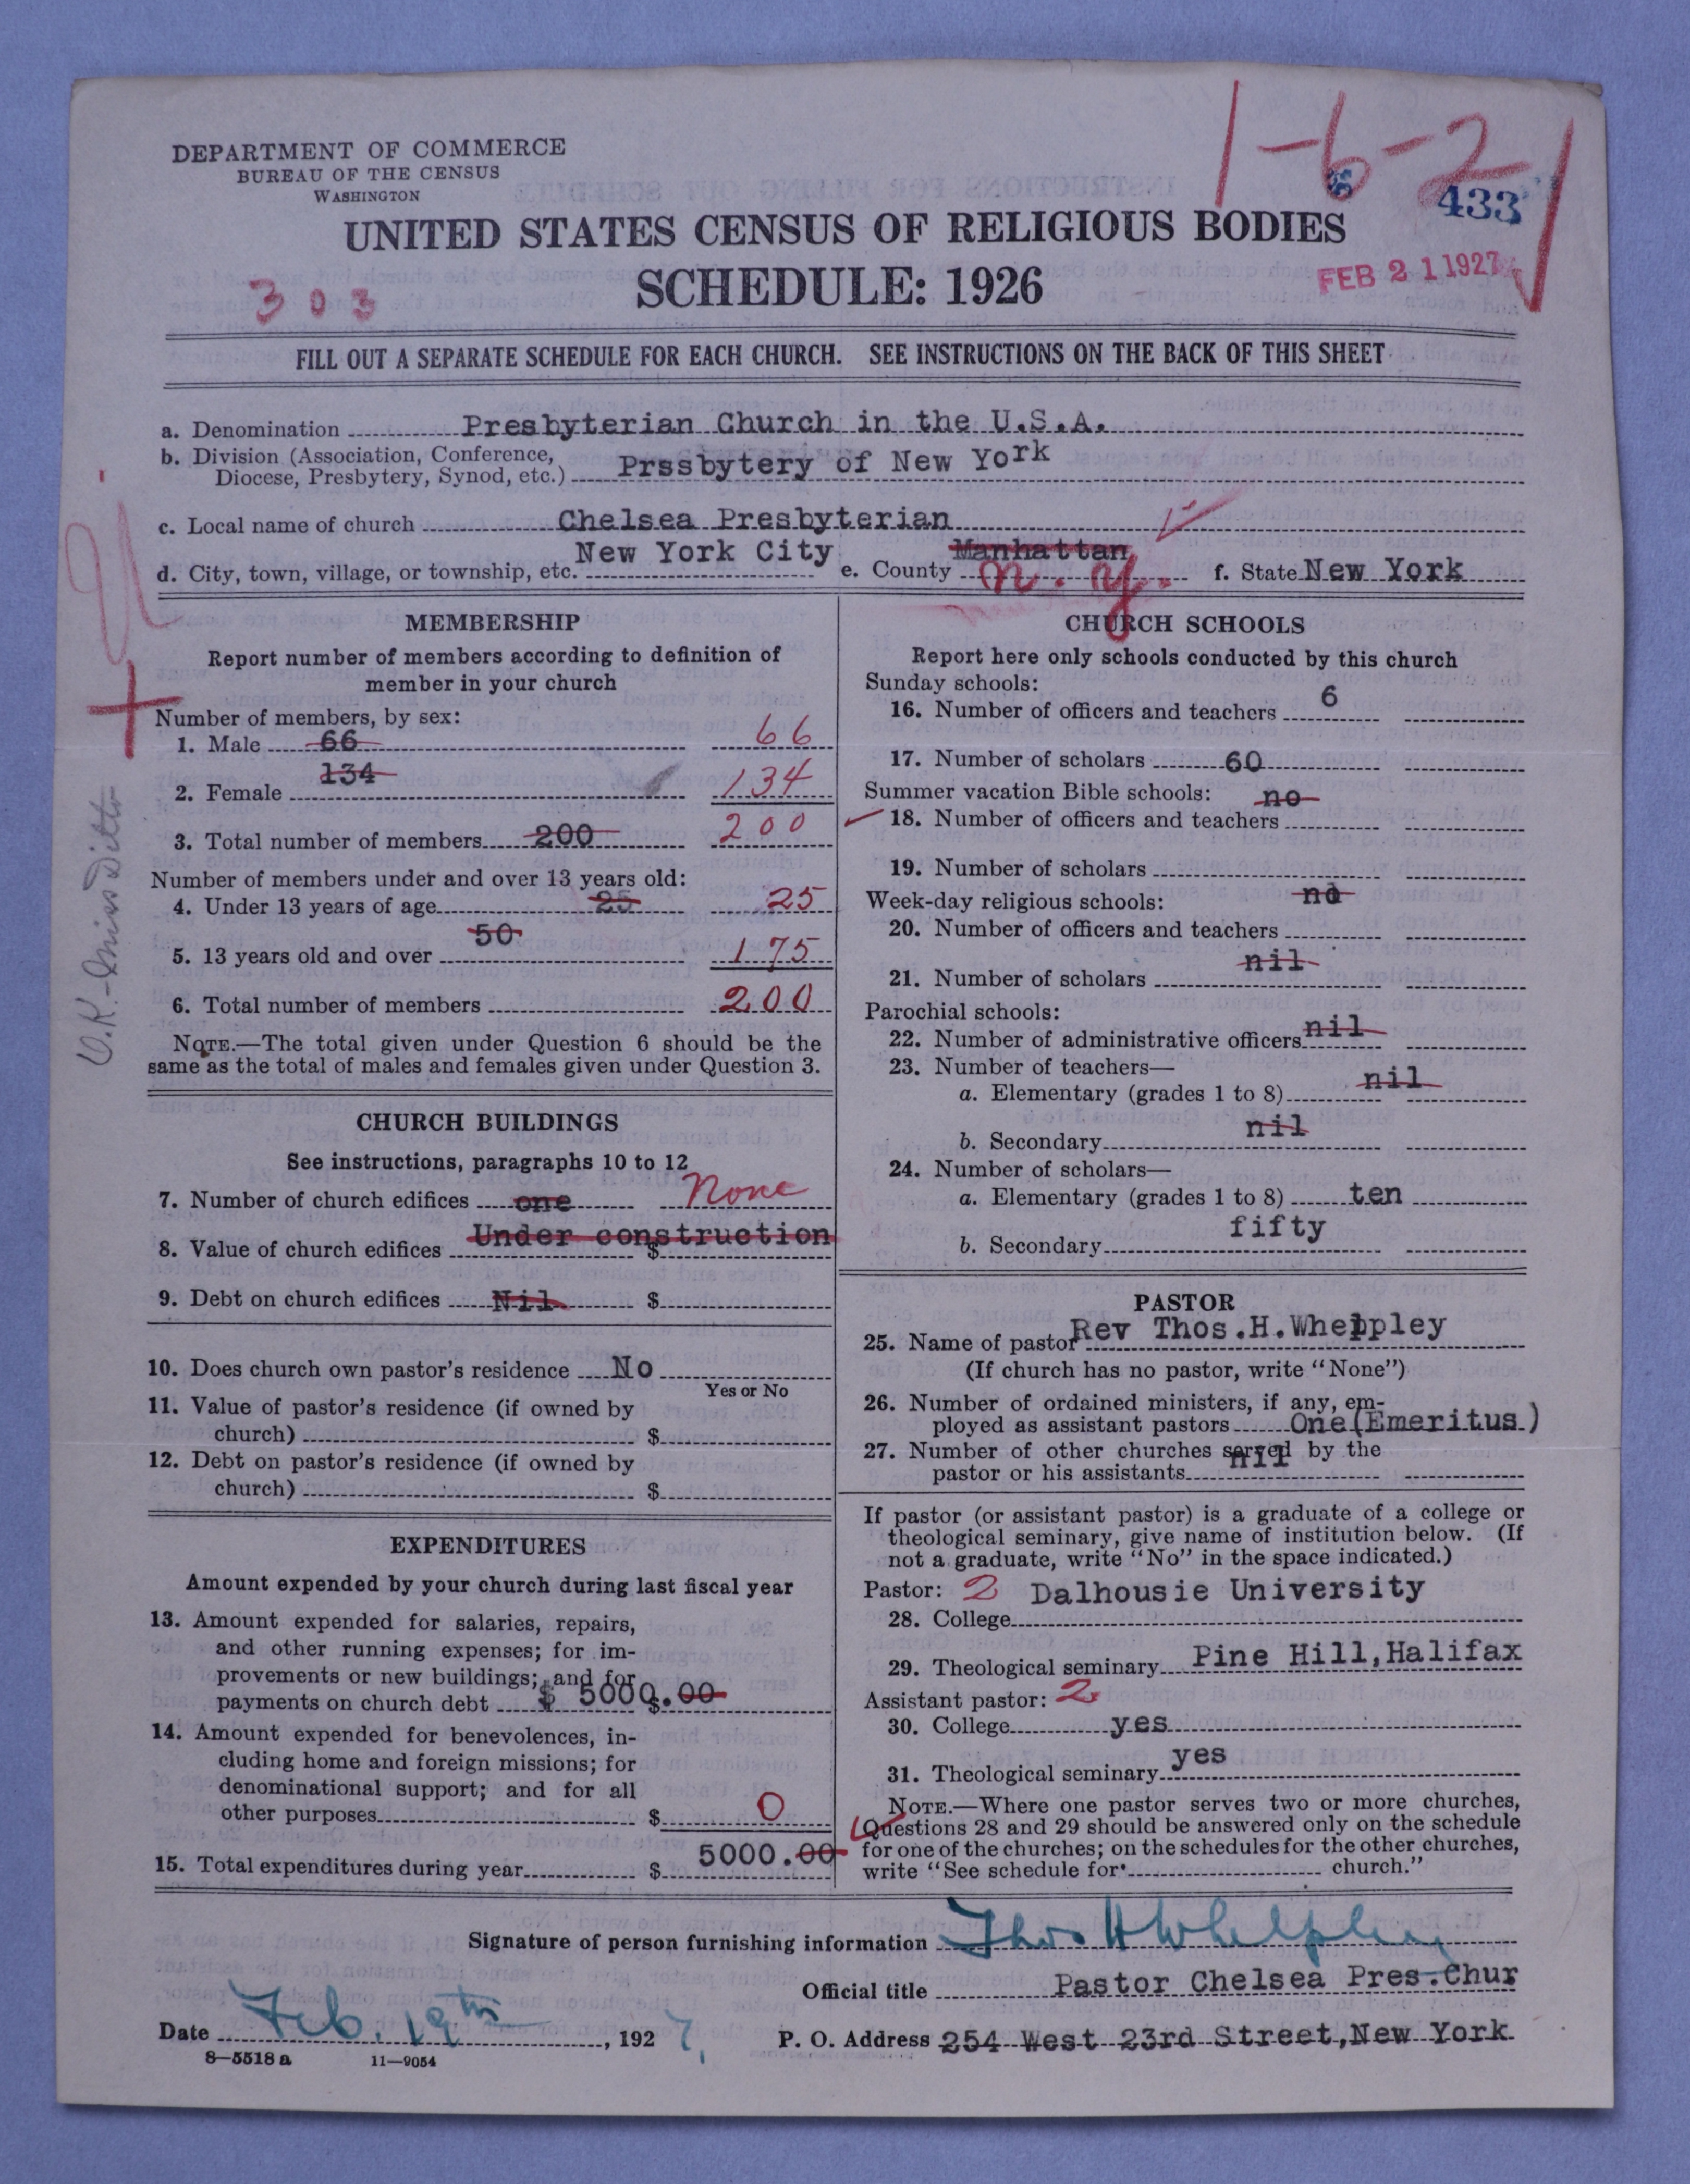 DEPARTMENT OF COMMERCE
BUREAU OF THE CENSUS
WASHINGTON
1-6-2
433
UNITED STATES CENSUS OF RELIGIOUS BODIES
SCHEDULE: 1926
FEB 21 1927
303
FILL OUT A SEPARATE SCHEDULE FOR EACH CHURCH. SEE INSTRUCTIONS ON THE BACK OF THIS SHEET
a. Denomination Presbyterian Church in the U.S.A.
b. Division (Association, Conference, Diocese, Presbytery, Synod, etc.) Prssbytery of New York
c. Local name of church Chelsea Presbyterian
d. City, town, village, or township, etc. New York City e. County Manhattan N.Y. f. State New York
O.K.-Miss Ditto
MEMBERSHIP
Report number of members according to definition of
member in your church
Number of members, by sex:
1. Male 66 66
2. Female 134 134
3. Total number of members 200 200
Number of members under and over 13 years old:
4. Under 13 years of age 25 25
5. 13 years old and over 50 175
6. Total number of members 200
NOTE.—The total given under Question 6 should be the
same as the total of males and females given under Question 3.
CHURCH BUILDINGS
See instructions, paragraphs 10 to 12
7. Number of church edifices one None
8. Value of church edifices Under construction $
9. Debt on church edifices Nil $
10. Does church own pastor's residence No
Yes or No
11. Value of pastor's residence (if owned by
church) $
12. Debt on pastor's residence (if owned by
church) $
EXPENDITURES
Amount expended by your church during last fiscal year
13. Amount expended for salaries, repairs,
and other running expenses; for im-
provements or new buildings; and for
payments on church debt $ 5000.00
14. Amount expended for benevolences, in-
cluding home and foreign missions; for
denominational support; and for all
other purposes $ 0
15. Total expenditures during year $ 5000.00
CHURCH SCHOOLS
Report here only schools conducted by this church
Sunday schools:
16. Number of officers and teachers 6
17. Number of scholars 60
Summer vacation Bible schools: no
18. Number of officers and teachers
19. Number of scholars
Week-day religious schools: no
20. Number of officers and teachers
21. Number of scholars nil
Parochial schools:
22. Number of administrative officers nil
23. Number of teachers—
a. Elementary (grades 1 to 8) nil
b. Secondary nil
24. Number of scholars—
a. Elementary (grades 1 to 8) ten
b. Secondary fifty
PASTOR
25. Name of pastor Rev Thos.H.Whelpley
(If church has no pastor, write "None")
26. Number of ordained ministers, if any, em-
ployed as assistant pastors One(Emeritus)
27. Number of other churches served by the
pastor or his assistants nil
If pastor (or assistant pastor) is a graduate of a college or
theological seminary, give name of institution below. (If
not a graduate, write "No" in the space indicated.)
Pastor: 2 Dalhousie University
28. College
29. Theological seminary Pine Hill,Halifax
Assistant pastor: 2
30. College yes
31. Theological seminary yes
NOTE.—Where one pastor serves two or more churches,
Questions 28 and 29 should be answered only on the schedule
for one of the churches; on the schedules for the other churches,
write "See schedule for church."
Signature of person furnishing information Thos H Whelpley
Official title Pastor Chelsea Pres.Chur
Date Feb. 19th, 1927, P. O. Address 254 West 23rd Street,New York
8—5518 a 11—9054